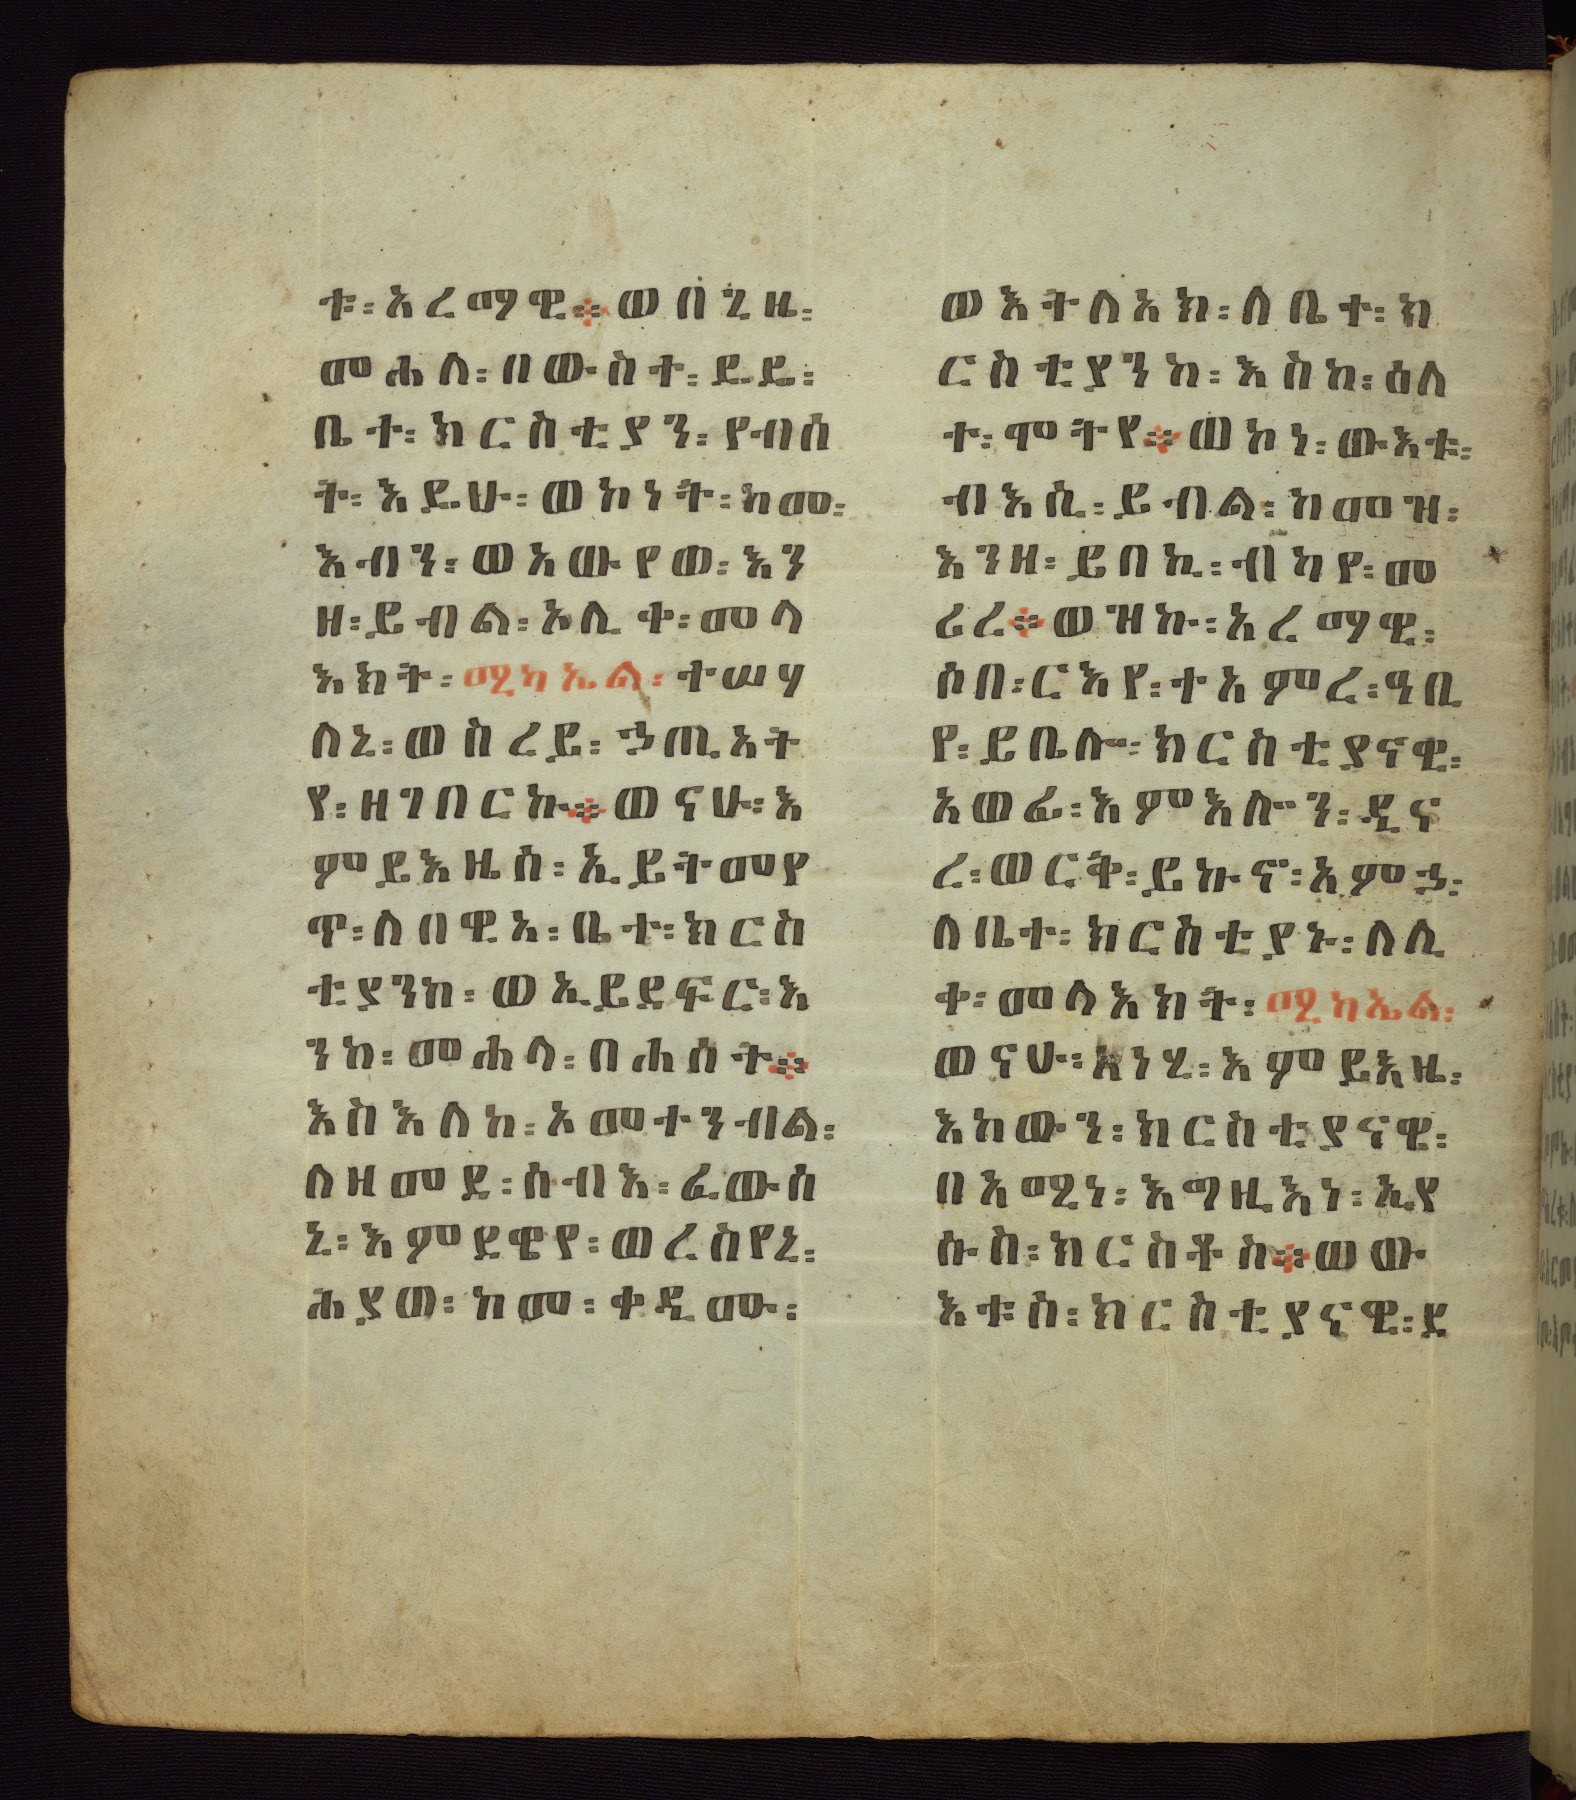 ቱ፡አረማዊ።ወበጊዜ፡
መሐለ፡በውስተ፡ደዴ፡
ቤተ፡ክርስቲያን፡የብሰ
ት፡እደሁ፡ወኮነት፡ከመ፡
እብን፡ወአውየወ፡እን
ዘ፡ይብል፡ኦሊቀ፡መላ
እክት፡ሚካኤል፡ተሠሃ
ለኒ፡ወስረይ፡ኃጢአት
የ፡ዘገበርኩ።ወናሁ፡እ
ምይእዜሰ፡ኢይትመየ
ጥ፡ለበዊአ፡ቤተ፡ክርስ
ቲያንከ፡ወኢይደፍር፡እ
ንከ፡መሐላ፡በሐሰት።
እስእለከ፡ኦመተንብል፡
ለዘመደ፡ሰብእ፡ፈውስ
ኒ፡እምደዌየ፡ወረስየኒ፡
ሕያወ፡ከመ፡ቀዲሙ፡
ወእትለአክ፡ለቤተ፡ክ
ርስቲያንከ፡እስከ፡ዕለ
ተ፡ሞትየ።ወኮነ፡ውእቱ፡
ብእሲ፡ይብል፡ከመዝ፡
እንዘ፡ይበኪ፡ብካየ፡መ
ሪረ።ወዝኩ፡አረማዊ፡
ሶበ፡ርእየ፡ተአምረ፡ዓቢ
የ፡ይቤሎ፡ክርስቲያናዊ፡
አወፊ፡እምእሎን፡ዲና
ረ፡ወርቅ፡ይኩኖ፡አምኃ፡
ለቤተ፡ክርስቲያኑ፡ለሊ
ቀ፡መላእክት፡ሚካኤል፡
ወናሁ፡አነሂ፡እምይእዜ፡
እከውን፡ክርስቲያናዊ፡
በአሚነ፡እግዚእነ፡ኢየ
ሱስ፡ክርስቶስ።ወው
እቱሰ፡ክርስቲያናዊ፡ደ